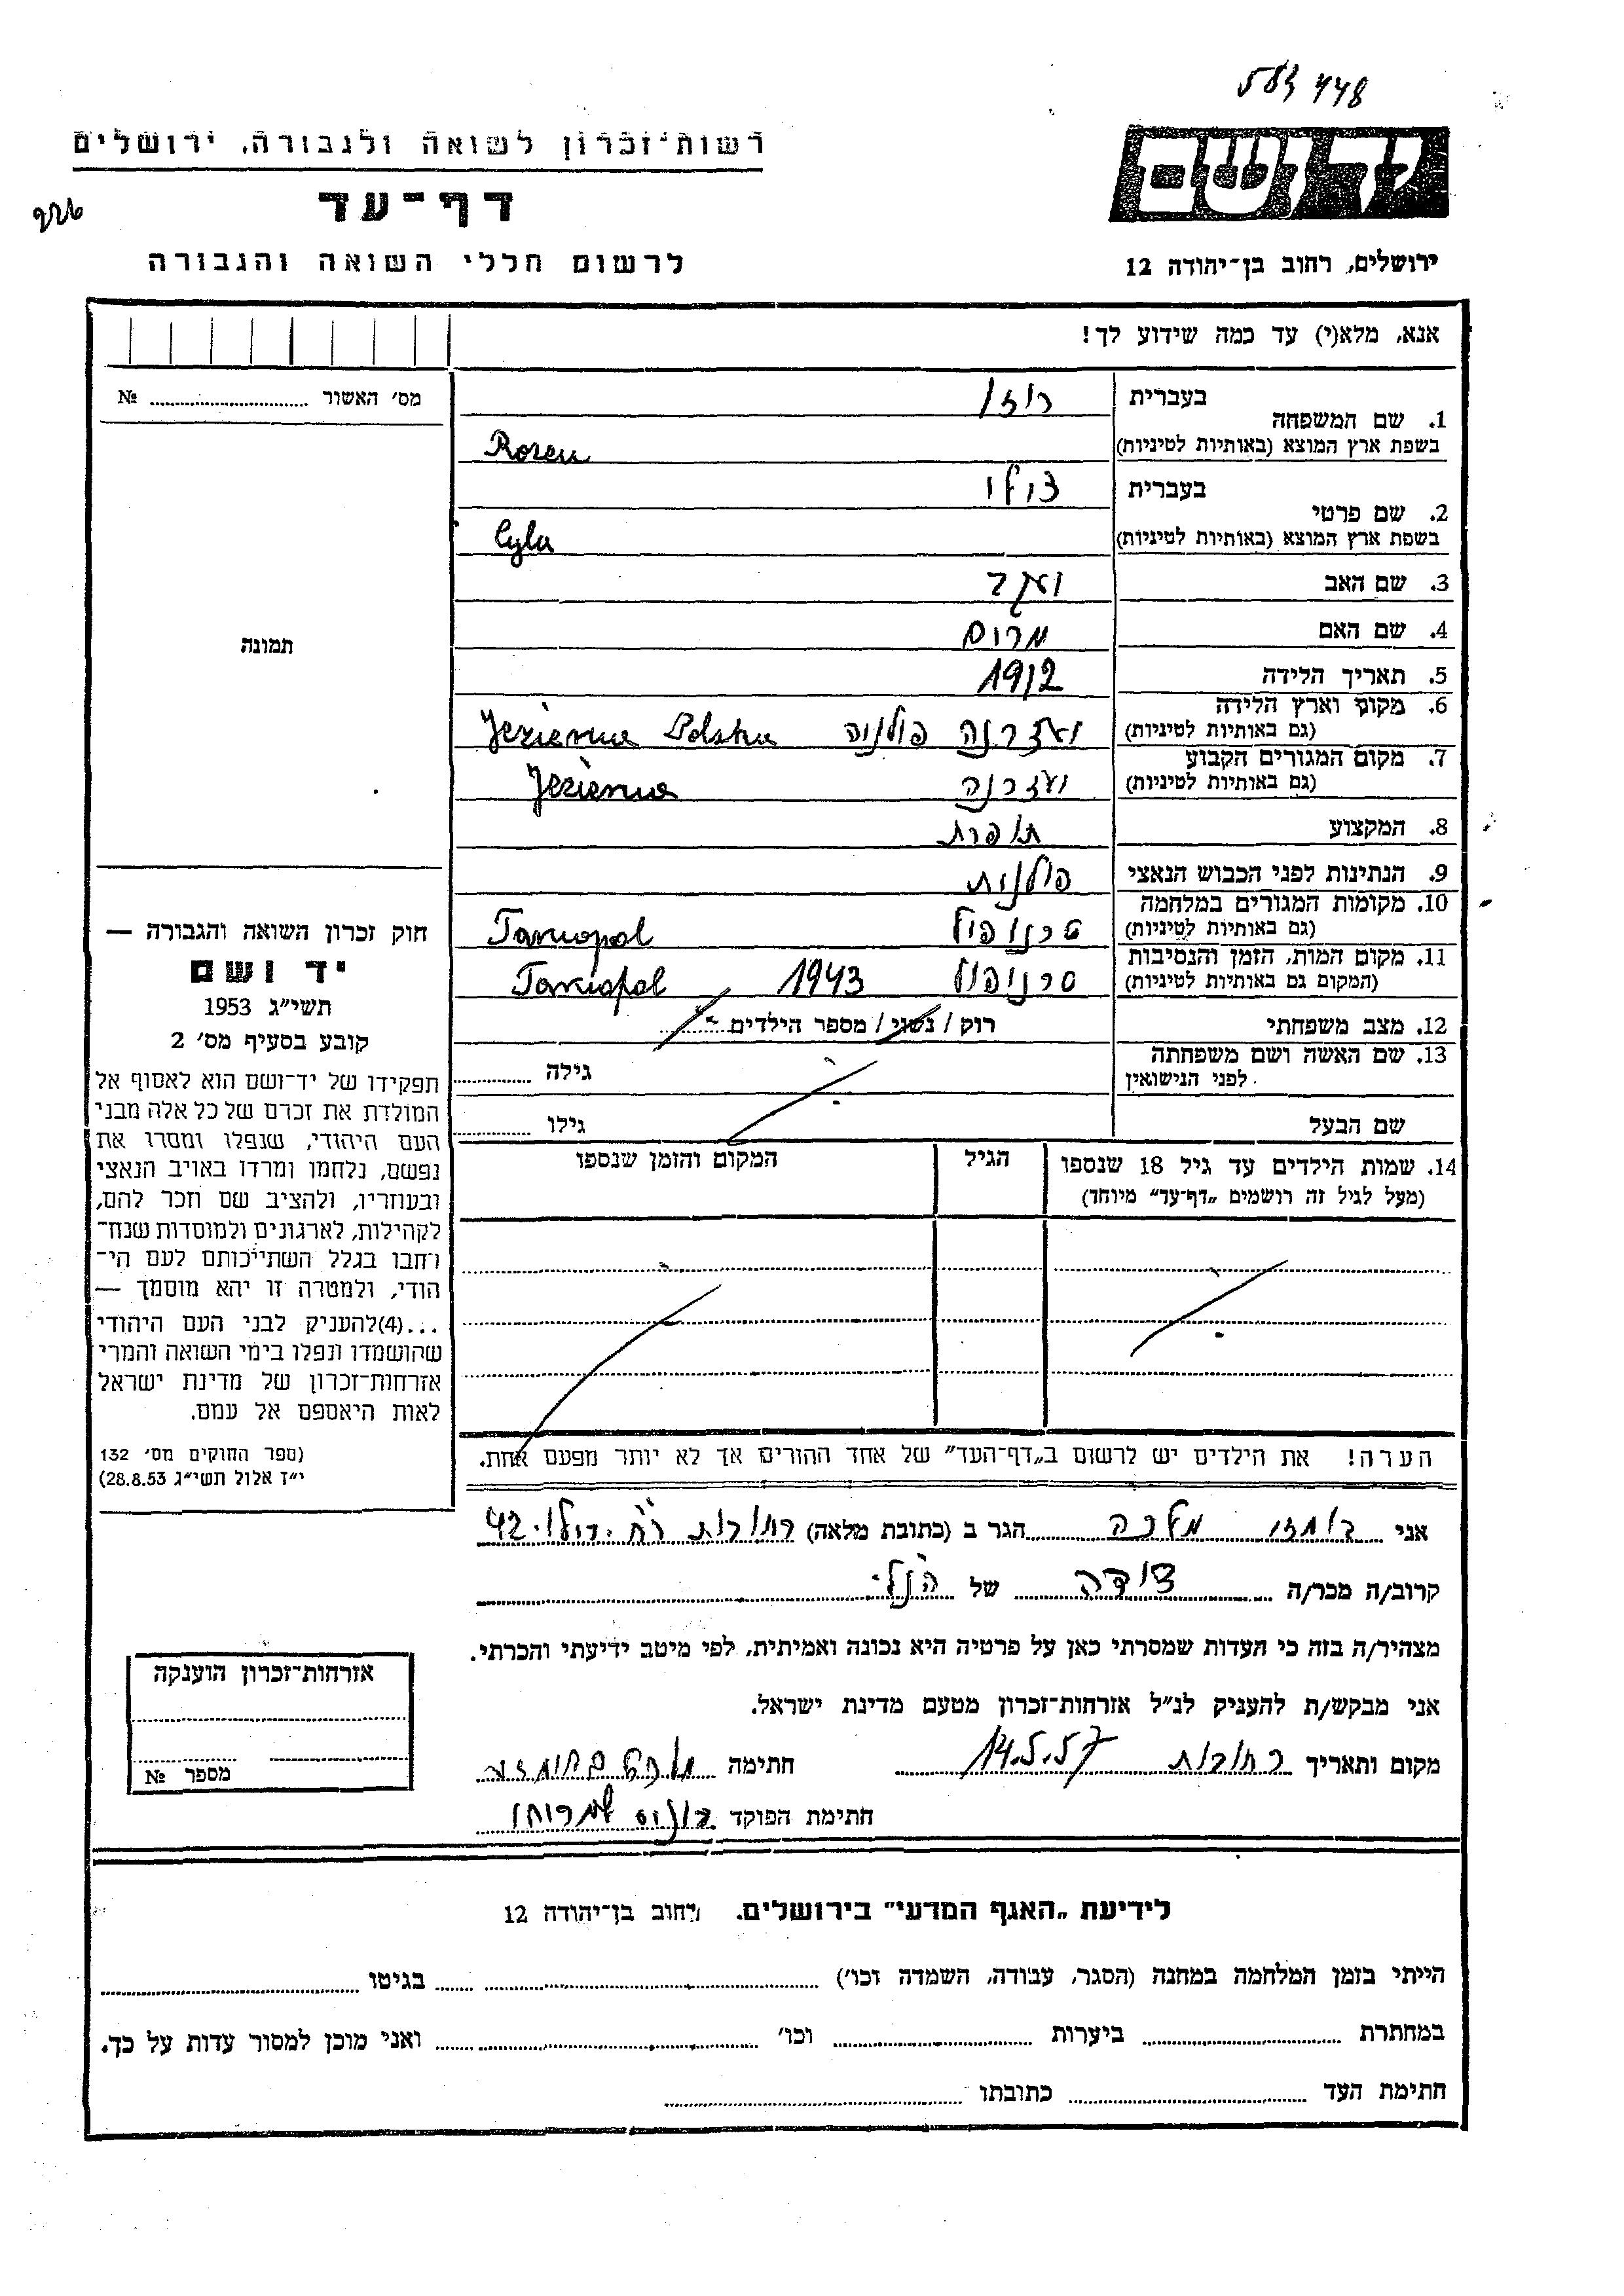 583448
רשות־זכרון לשואה ולגבורה, ירושלים
יד ושם
דף־עד
לרשום חללי השואה והגבורה
ירושלים, רחוב בן־יהודה 12
אנא, מלא(י) עד כמה שידוע לך!
מס׳ האשור № 
1. שם המשפחה
בעברית רוזן
בשפת ארץ המוצא (באותיות לטיניות) Rozen
2. שם פרטי
בעברית
בשפת ארץ המוצא (באותיות לטיניות) Cyla
3. שם האב
4. שם האם מרים
5. תאריך הלידה 1912
6. מקום וארץ הלידה
(גם באותיות לטיניות) פולניה Jezierna Polska
7. מקום המגורים הקבוע
(גם באותיות לטיניות) יזרנה Jezierna
8. המקצוע תופרת
9. הנתינות לפני הכבוש הנאצי פולנית
10. מקומות המגורים במלחמה
(גם באותיות לטיניות) טרנופול Tarnopol
11. מקום המות, הזמן והנסיבות
(המקום גם באותיות לטיניות) טרנופול 1943 Tarnopol
12. מצב משפחתי רוק / נשוי / מספר הילדים
13. שם האשה ושם משפחתה
לפני הנישואין גילה
שם הבעל גילו
14. שמות הילדים עד גיל 18 שנספו
(מעל לגיל זה רושמים „דף־עד״ מיוחד)
הגיל
המקום והזמן שנספו
הערה! את הילדים יש לרשום ב„דף־העד״ של אחד ההורים אך לא יותר מפעם אחת.
תמונה
חוק זכרון השואה והגבורה —
יד ושם
תשי״ג 1953
קובע בסעיף מס׳ 2
תפקידו של יד־ושם הוא לאסוף אל
המולדת את זכרם של כל אלה מבני
העם היהודי, שנפלו ומסרו את
נפשם, נלחמו ומרדו באויב הנאצי
ובעוזריו, ולהציב שם וזכר להם,
לקהילות, לארגונים ולמוסדות שנח־
רחבו בגלל השתייכותם לעם הי־
הודי, ולמטרה זו יהא מוסמך —
...(4)להעניק לבני העם היהודי
שהושמדו ונפלו בימי השואה והמרי
אזרחות־זכרון של מדינת ישראל
לאות היאספם אל עמם.
(ספר החוקים מס׳ 132
י״ז אלול תשי״ג 28.8.53)
אני מלכה הגר ב (כתובת מלאה) רחובות רח׳ 42
קרוב/ה מכר/ה דודה של הנ״ל
מצהיר/ה בזה כי העדות שמסרתי כאן על פרטיה היא נכונה ואמיתית, לפי מיטב ידיעתי והכרתי.
אני מבקש/ת להעניק לנ״ל אזרחות־זכרון מטעם מדינת ישראל.
מקום ותאריך רחובות 14.5.57 חתימה
חתימת הפוקד
אזרחות־זכרון הוענקה
מספר №
לידיעת „האגף המדעי״ בירושלים. רחוב בן־יהודה 12
הייתי בזמן המלחמה במחנה (הסגר, עבודה, השמדה וכו׳) בגיטו
במחתרת ביערות וכו׳ ואני מוכן למסור עדות על כך.
חתימת העד כתובתו